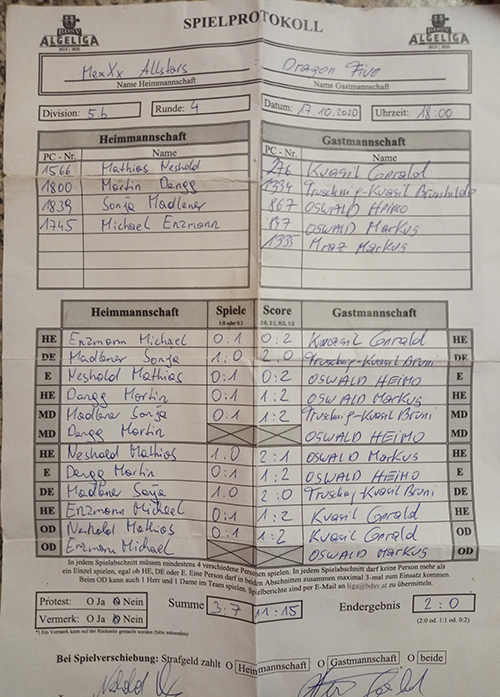 SPIELPROTOKOLL
ALGELIGA
2019 | 2020
ALGELIGA
2019 | 2020
MexXx Allstars Dragon Five
Name Heimmannschaft Name Gastmannschaft
Division: 5.b Runde: 4 Datum: 17.10.2020 Uhrzeit: 18:00
Heimmannschaft Gastmannschaft
PC - Nr. Name PC - Nr. Name
1566 Mathias Neshold Kvasil Gerald
1800 Martin Dangg 1394 Truschnig-Kvasil Brunhilde
1839 Sonja Madlener 867 OSWALD HEIMO
1745 Michael Enzmann 847 OSWALD MARKUS
1335 Mraz Markus
Heimmannschaft Spiele Score Gastmannschaft
1:0 oder 0:1 2:0, 2:1, 0:2, 1:2
HE Enzmann Michael 0:1 0:2 Kvasil Gerald HE
DE Madlener Sonja 1:0 2:0 Truschnig-Kvasil Bruni DE
E Neshold Mathias 0:1 0:2 OSWALD HEIMO E
HE Dangg Martin 0:1 1:2 OSWALD MARKUS HE
MD Madlener Sonja 0:1 1:2 Truschnig-Kvasil Bruni MD
MD Dangg Martin OSWALD HEIMO MD
HE Neshold Mathias 1:0 2:1 OSWALD MARKUS HE
E Dangg Martin 0:1 1:2 OSWALD HEIMO E
DE Madlener Sonja 1:0 2:0 Truschnig-Kvasil Bruni DE
HE Enzmann Michael 0:1 1:2 Kvasil Gerald HE
OD Neshold Mathias 0:1 1:2 Kvasil Gerald OD
OD Enzmann Michael OSWALD MARKUS OD
In jedem Spielabschnitt müssen mindestens 4 verschiedene Personen spielen. In jedem Spielabschnitt darf keine Person mehr als
ein Einzel spielen, egal ob HE, DE oder E. Eine Person darf in beiden Abschnitten zusammen maximal 3-mal zum Einsatz kommen.
Beim OD kann auch 1 Herr und 1 Dame im Team spielen. Spielberichte sind per E-Mail an liga@bdsv.at zu übermitteln.
Protest: O Ja O Nein Summe 3:7 11:15 Endergebnis 2:0
Vermerk: O Ja O Nein (2:0 od. 1:1 od. 0:2)
*) Ein Vermerk kann auf der Rückseite gemacht werden (bitte ankreuzen)
Bei Spielverschiebung: Strafgeld zahlt O Heimmannschaft O Gastmannschaft O beide